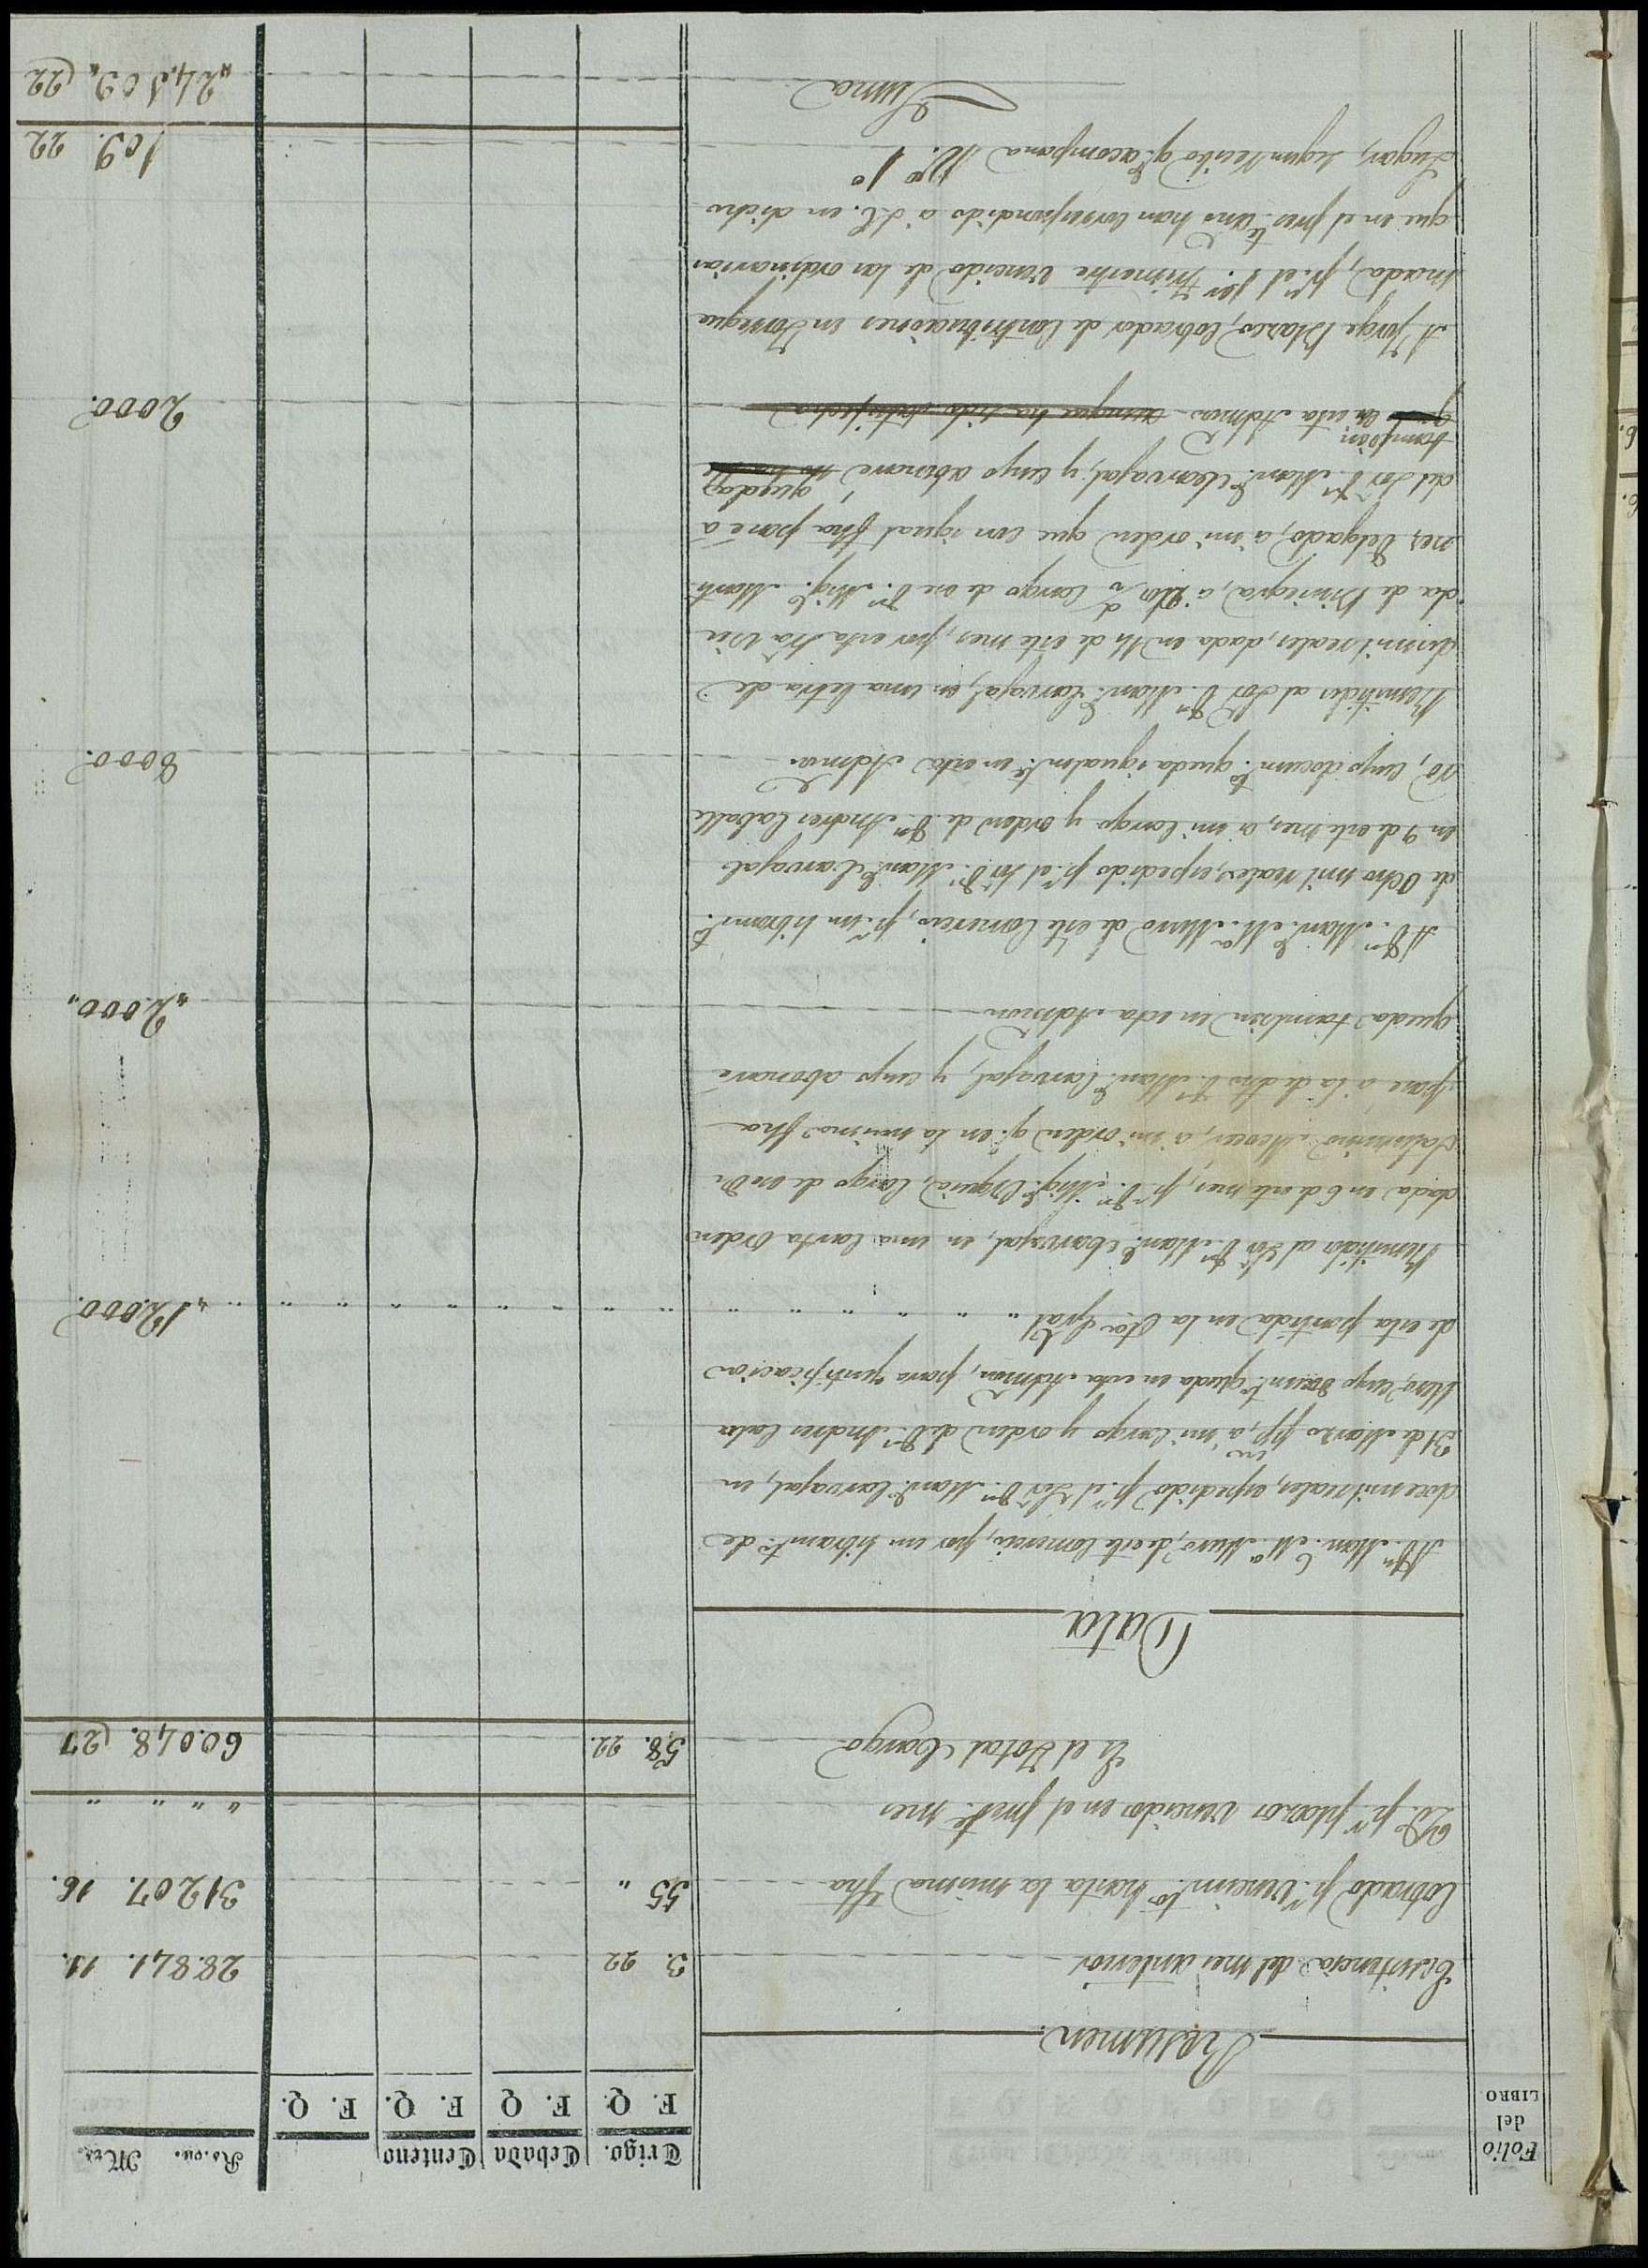 Folio
del
LIBRO
Trigo. Cebada Centeno Rs. vn. Mrs.
F. Q. F. Q F. Q. F. Q.
Resumen.
Existencia del mes anterior 3. 22 28.841. 11.
Cobrado pr. Vencimto. hasta la misma fha 55 " 31207. 16.
Yd. pr. plazos vencidos en el preste. mes " " " "
Es el total Cargo 58. 22. 60.048. (27
Data
A Dn. Manl. Ma. Muro, de este Comercio, por un libramto. de
doce mil reales, expedido pr. el Sor. Dn. Manl. Carvajal, en
31 de Marzo pp. a mi cargo y orden de Dn. Andres Caba
llero, cuyo documto. queda en esta Admon, para justificacion
de esta partida en la Cta. Gral " " " " " " " " " " " " " " " 12.000.
Remitidos al Sor. Dn. Manl. Carvajal, en una Carta orden
dada en 6 de este mes, pr. Dn. Migl. cargo de
Saturnino a mi orden qe. en la misma fha
pasé a la de dho Dn. Manl. Carvajal, y cuyo abonaré
queda tambien en esta Admon "2.000"
A Dn. Manl. Ma. Muro de este Comercio, pr. un libramto.
de Ocho mil reales, expedido pr. el Sor. Dn. Manl. Carvajal
en 9 de este mes, a mi cargo y orden de Dn. Andres Caballe
ro, cuyo documto. queda igualmte. en esta Admon. 8000.
Remitidos al Sor. Dn. Manl. Carvajal, en una letra de
dos mil reales, dada en 14 de este mes, por esta Sra. Viu
da de a cargo de Dn. Migl. Marti
nez Delgado, a mi orden que con igual fha pasé á
del Sor. Dn. Manl. Carvajal, y cuyo abonaré queda
tambien
en esta Admon aunque ha sido satisfecha 2000.
A Jorge Blazco, Cobrador de Contribuciones en Torreque
mada, pr. el 1er. trimestre vencido de las ordinarias
que en el preste. año han correspondido a S.E. en dicho
Lugar, segun recibo qe. acompaña No. 1o. 109. 22
Suma "24,109" (22